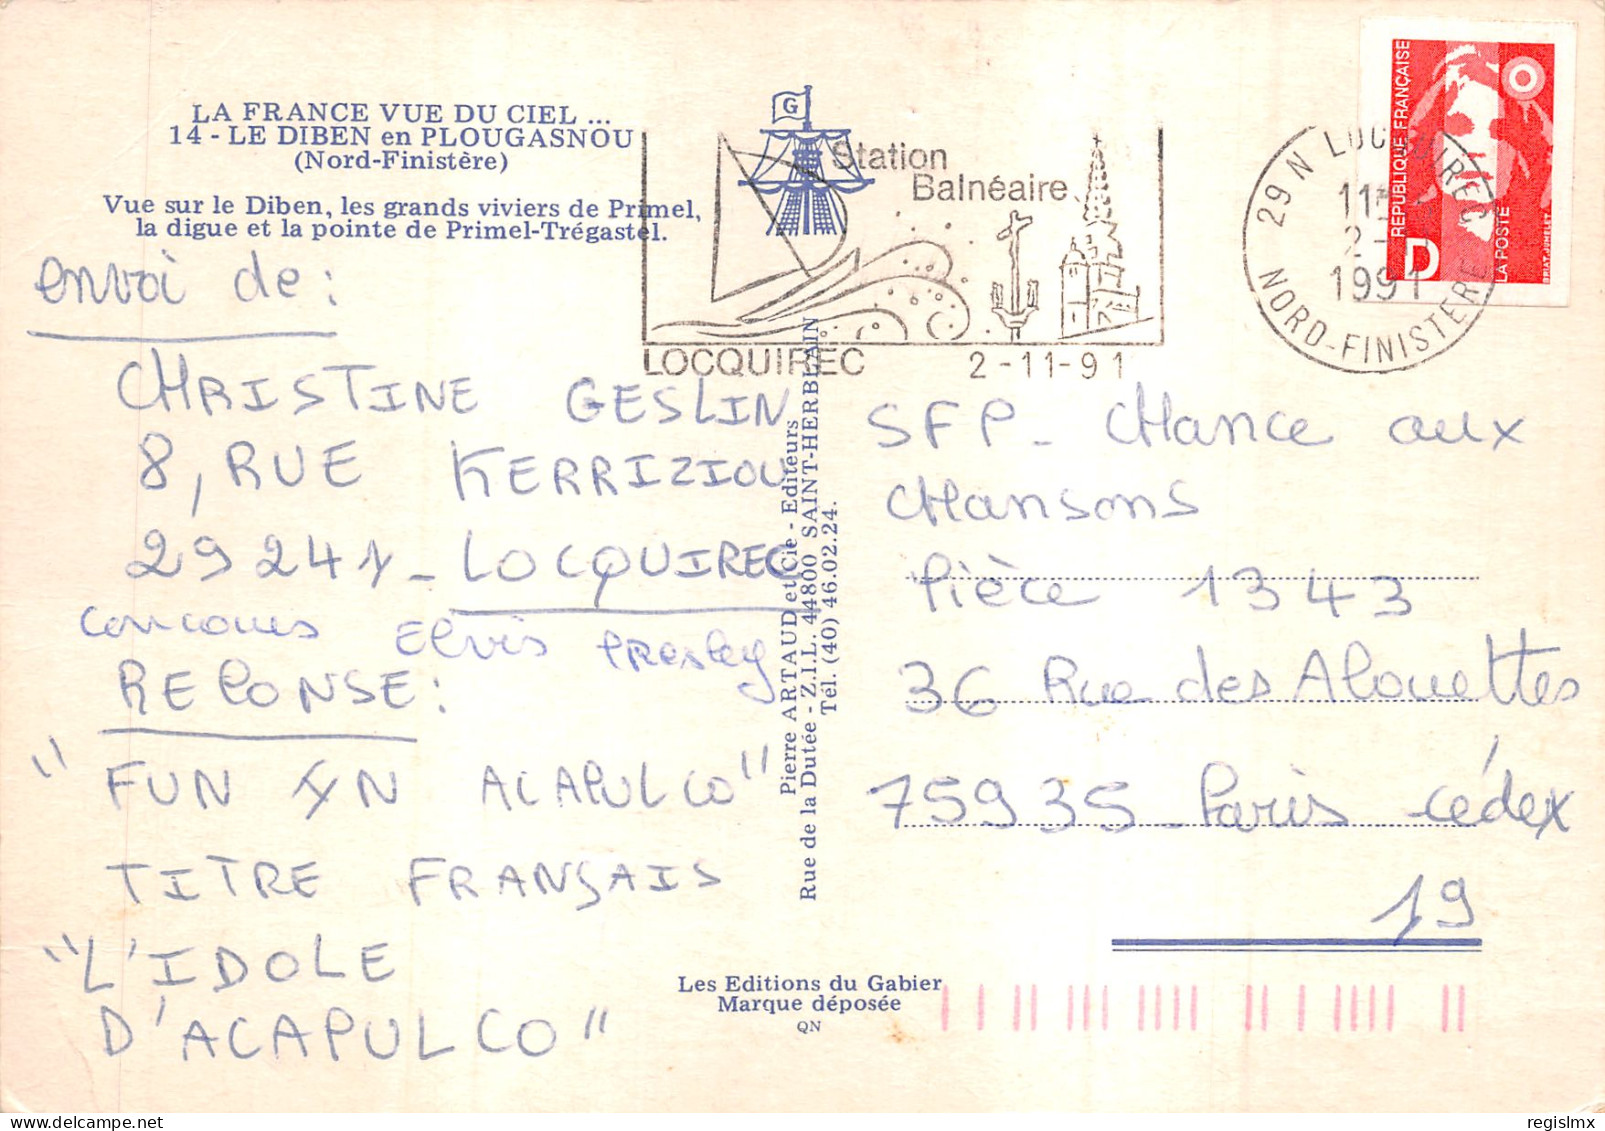 LA FRANCE VUE DU CIEL ...
14 - LE DIBEN en PLOUGASNOU
(Nord-Finistère)
Vue sur le Diben, les grands viviers de Primel,
la digue et la pointe de Primel-Trégastel.
envoi de :
CHRISTINE GESLIN
8, RUE KERRIZIOU
29241 - LOCQUIREC
concours Elvis Presley
REPONSE :
"FUN IN ACAPULCO"
TITRE FRANÇAIS
"L'IDOLE
D'ACAPULCO"
G
Station
Balnéaire
LOCQUIREC 2-11-91
Pierre ARTAUD et Cie - Editeurs
Rue de la Dutée - Z.I.L. 44800 SAINT-HERBLAIN
Tél. (40) 46.02.24.
29 N LOCQUIREC
1991
NORD-FINISTERE
REPUBLIQUE FRANÇAISE
D
LA POSTE
BRIAT-JUMELET
SFP - Chance aux
Chansons
Pièce 1343
36 Rue des Alouettes
75935 - Paris cédex
19
Les Editions du Gabier
Marque déposée
QN
regislmx